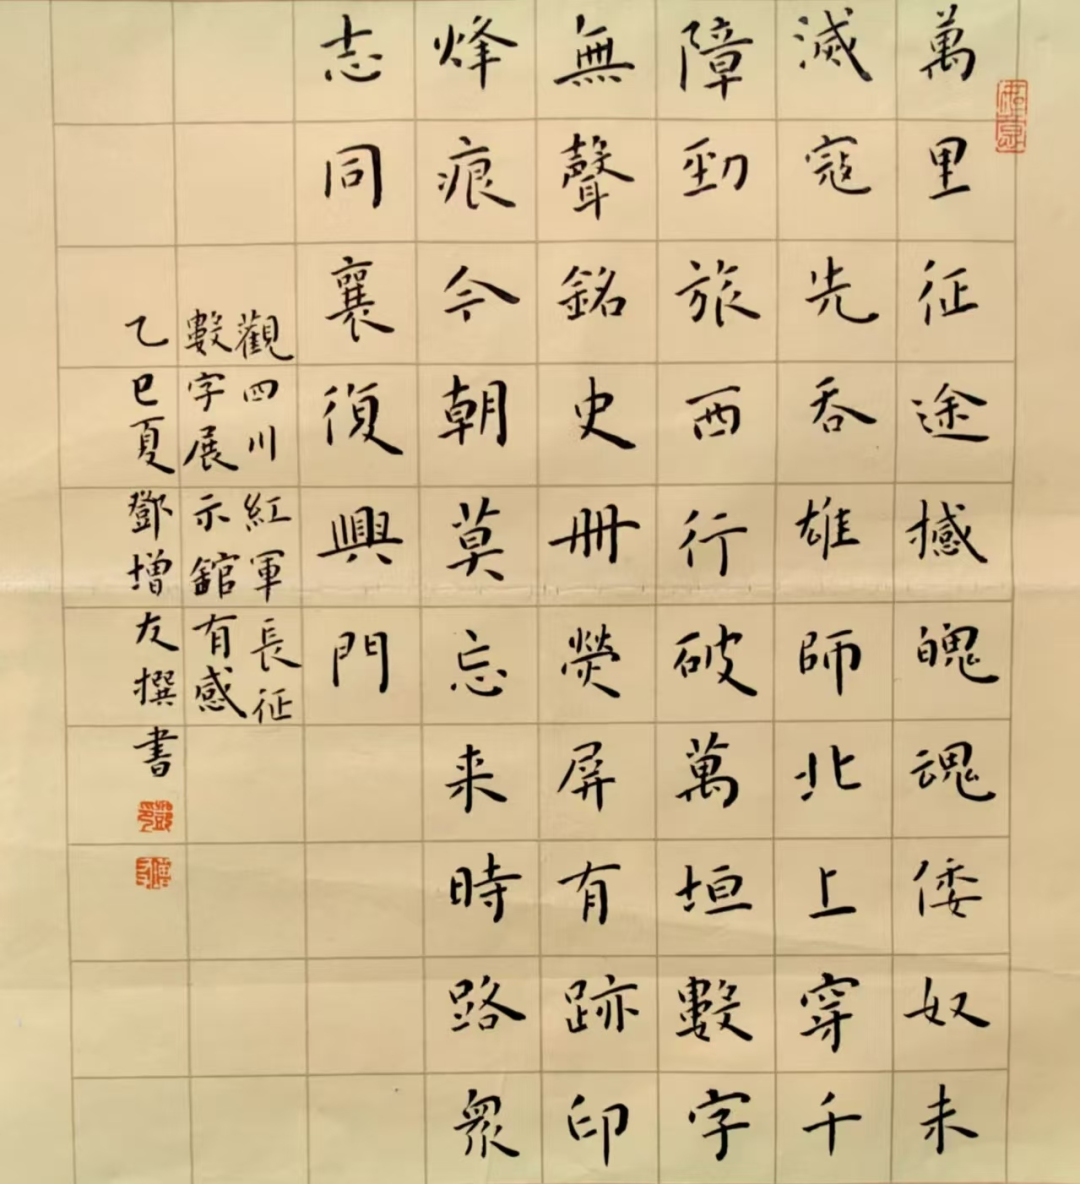 萬里征途撼魄魂倭奴未
滅寇先吞雄師北上穿千
障勁旅西行破萬垣數字
無聲銘史冊熒屏有跡印
烽痕今朝莫忘来時路眾
志同襄復興門
觀四川紅軍長征
數字展示館有感
乙巳夏鄧增友撰書